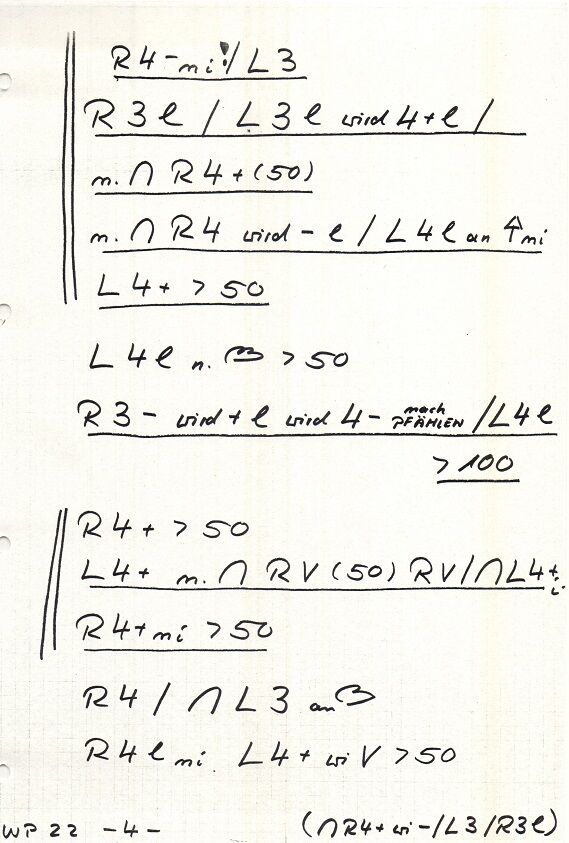 R4-mi!/L3
R3l / L3l wird 4+l /
n. ∩ R4+(50)
n. ∩ R4 wird - l / L4l an ↑ mi
L4+ > 50
L4l n. > 50
R3- wird +l wird 4- nach PFÄHLEN /L4l
> 100
R4+ > 50
L4+ n. ∩ RV(50) RV/∩L4+
R4+mi > 50
R4 / ∩ L3 an
R4l mi L4+ wi V > 50
WP 22 -4- (∩R4+ wi -/L3/R3l)